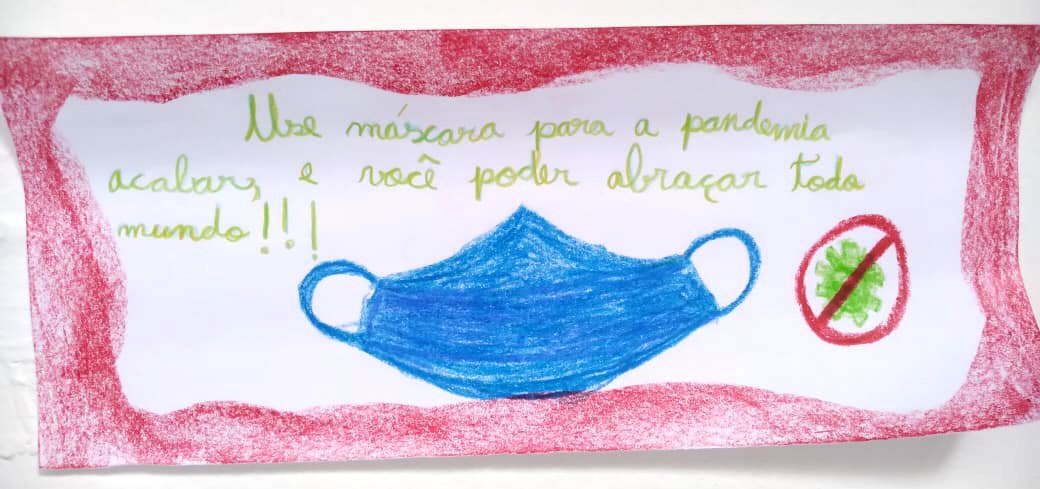 Use máscara para a pandemia
acabar, e você poder abraçar todo
mundo!!!